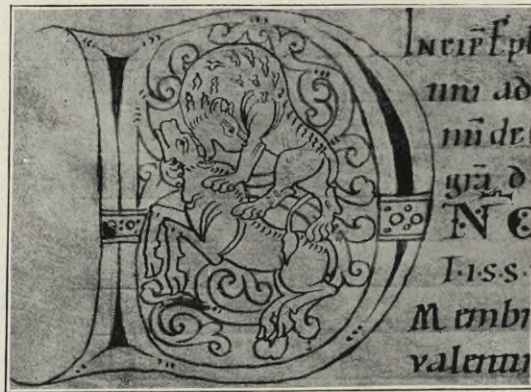 D
INCIP̄ Ep
um ad
nū de
grā d
NE
I·I·S·S
Membr
valenti